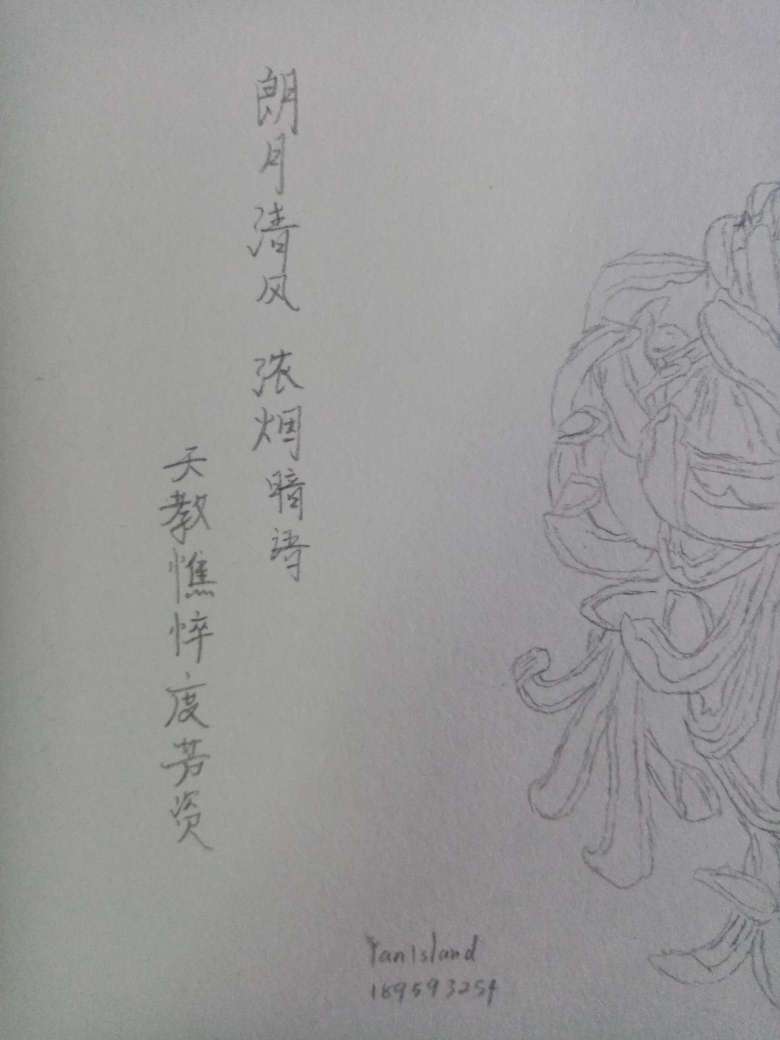 朗月清风 浓烟暗诗
天教憔悴度芳资
YanIsland
189593254